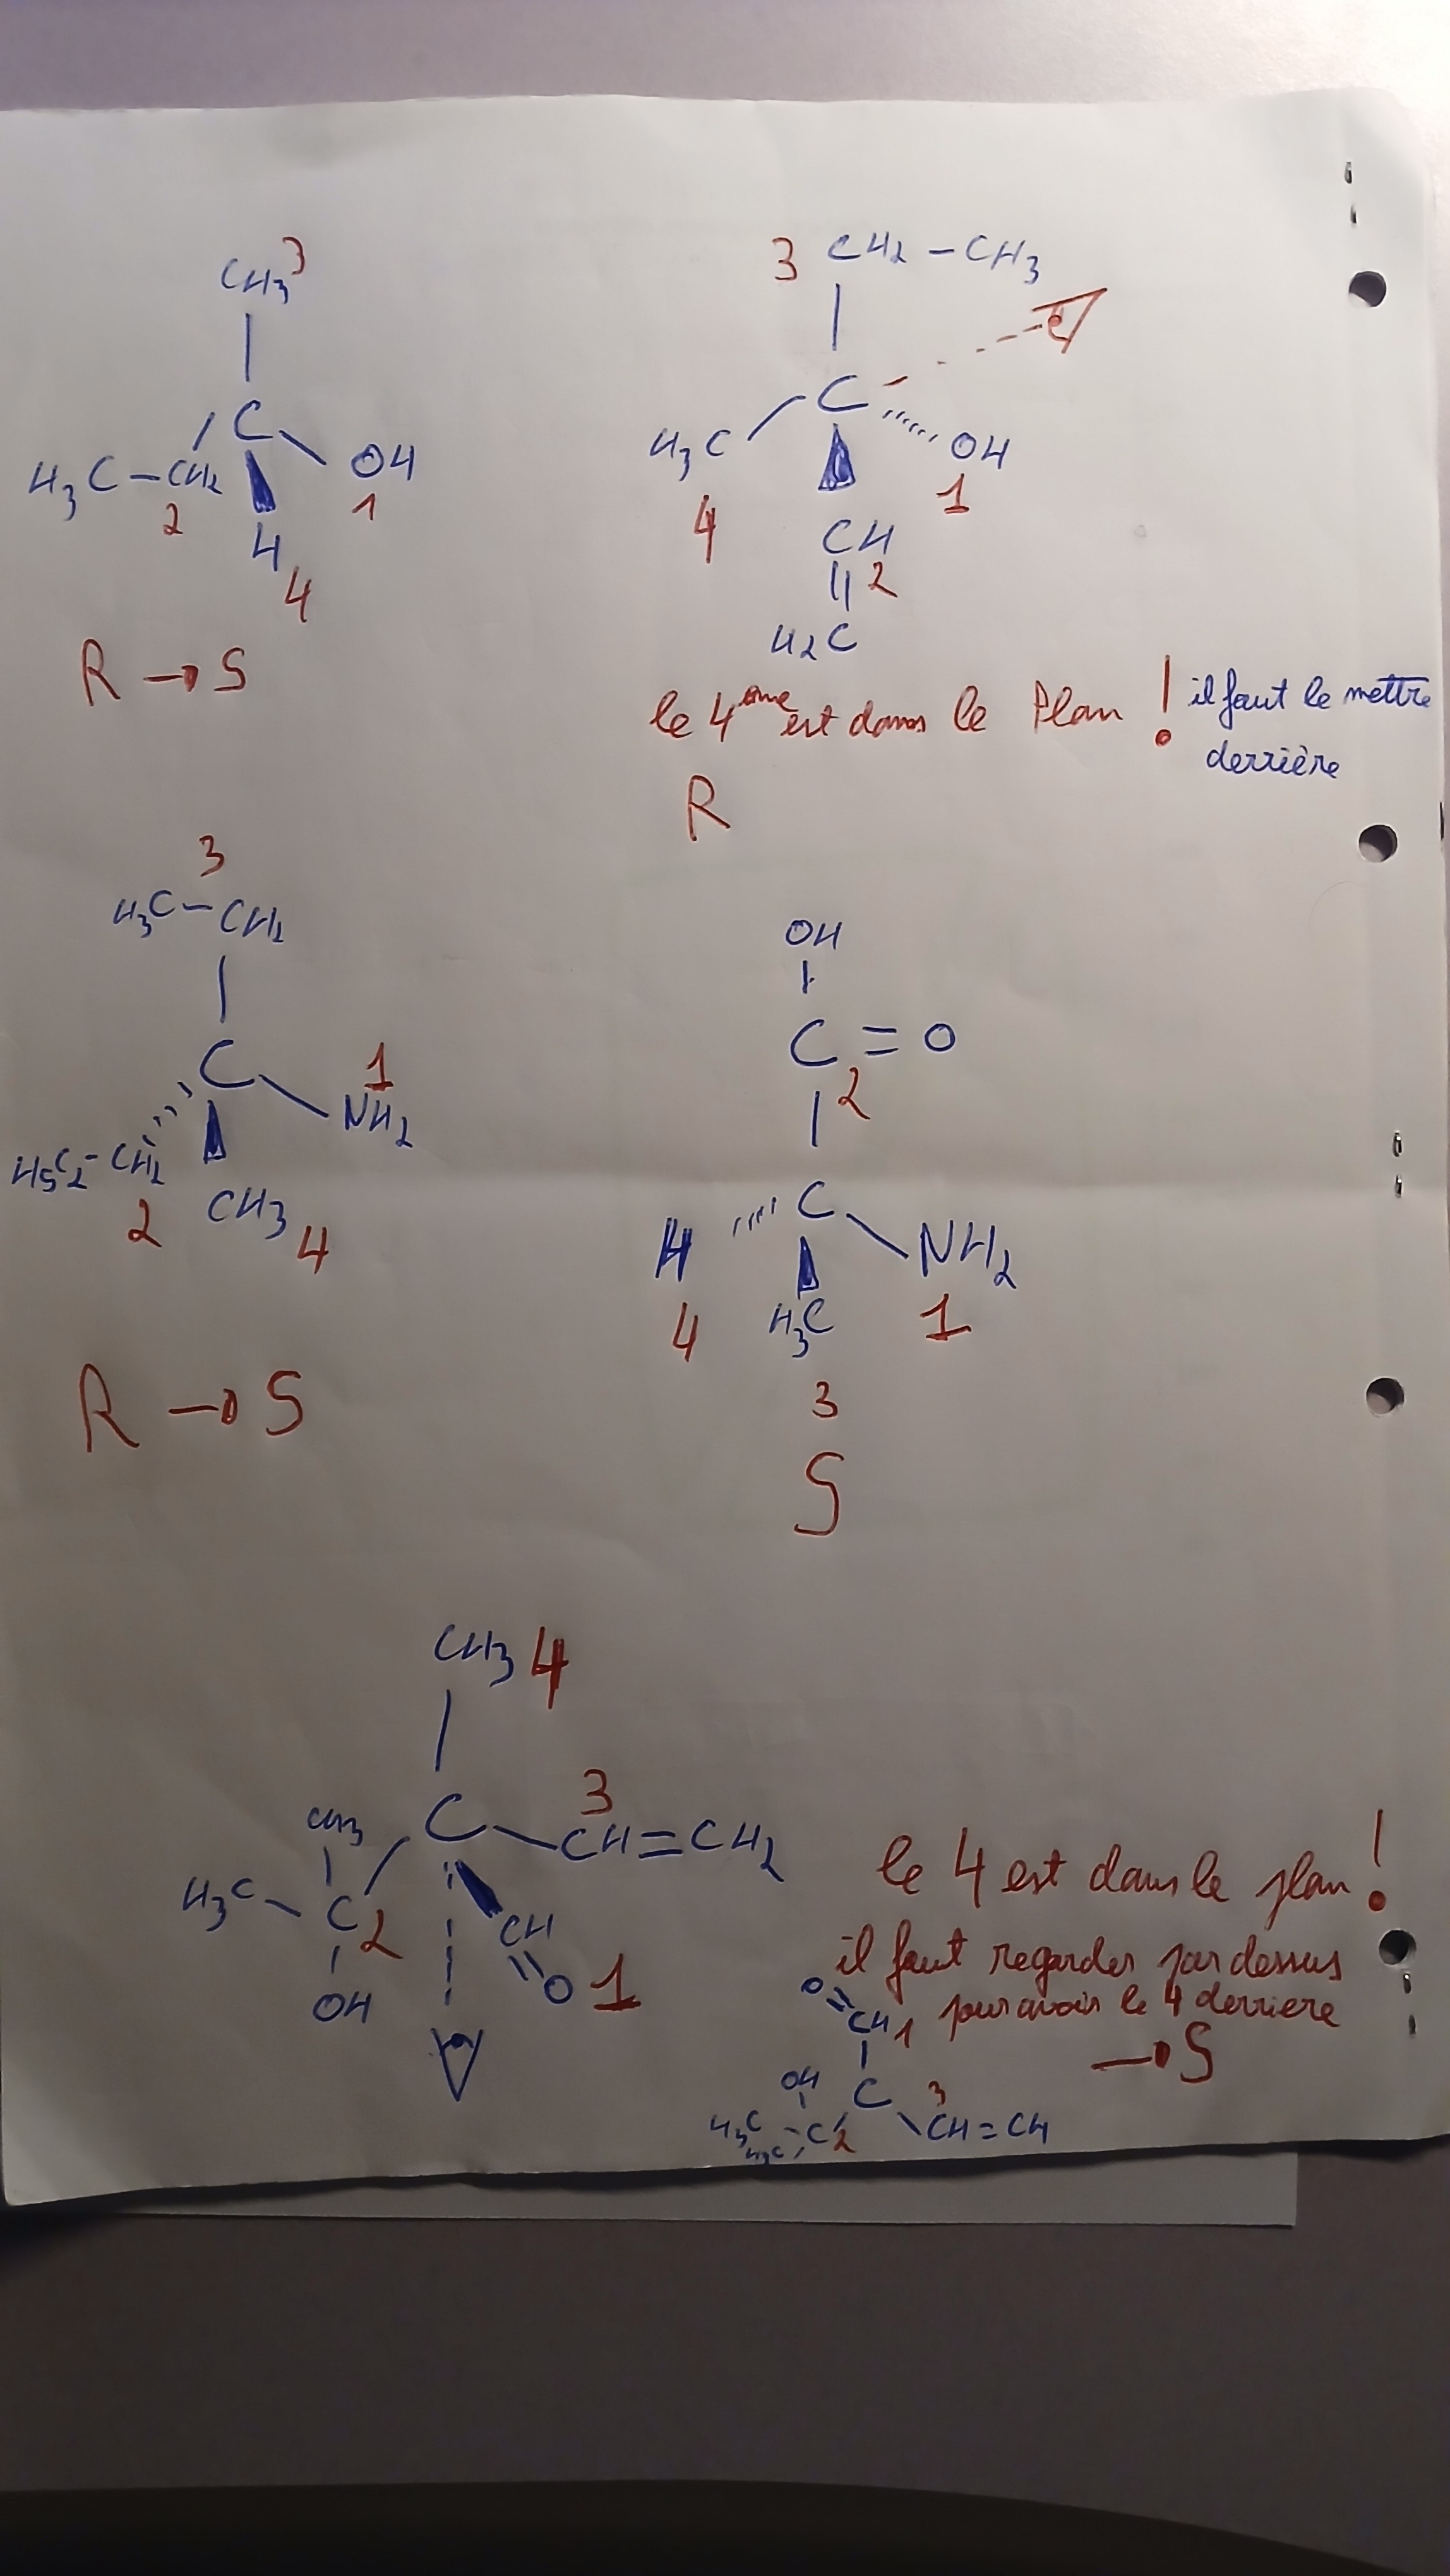 CH3 3
C
H3C-CH2 OH
2 1
H
4
R → S
3 CH2-CH3
C
H3C OH
4 1
CH
2
H2C
le 4ème est dans le Plan ! il faut le mettre
derrière
R
3
H3C-CH2
C
1
NH2
H5C2-CH2
2
CH3 4
R → S
OH
C=O
2
C
H NH2
4 H3C 1
3
S
CH3 4
C 3
CH=CH2
CH3
H3C
C 2
CH
O 1
OH
le 4 est dans le plan !
il faut regarder par dessus
pour avoir le 4 derriere
→ S
O=CH 1
OH
C
3
H3C C 2 CH=CH
H3C